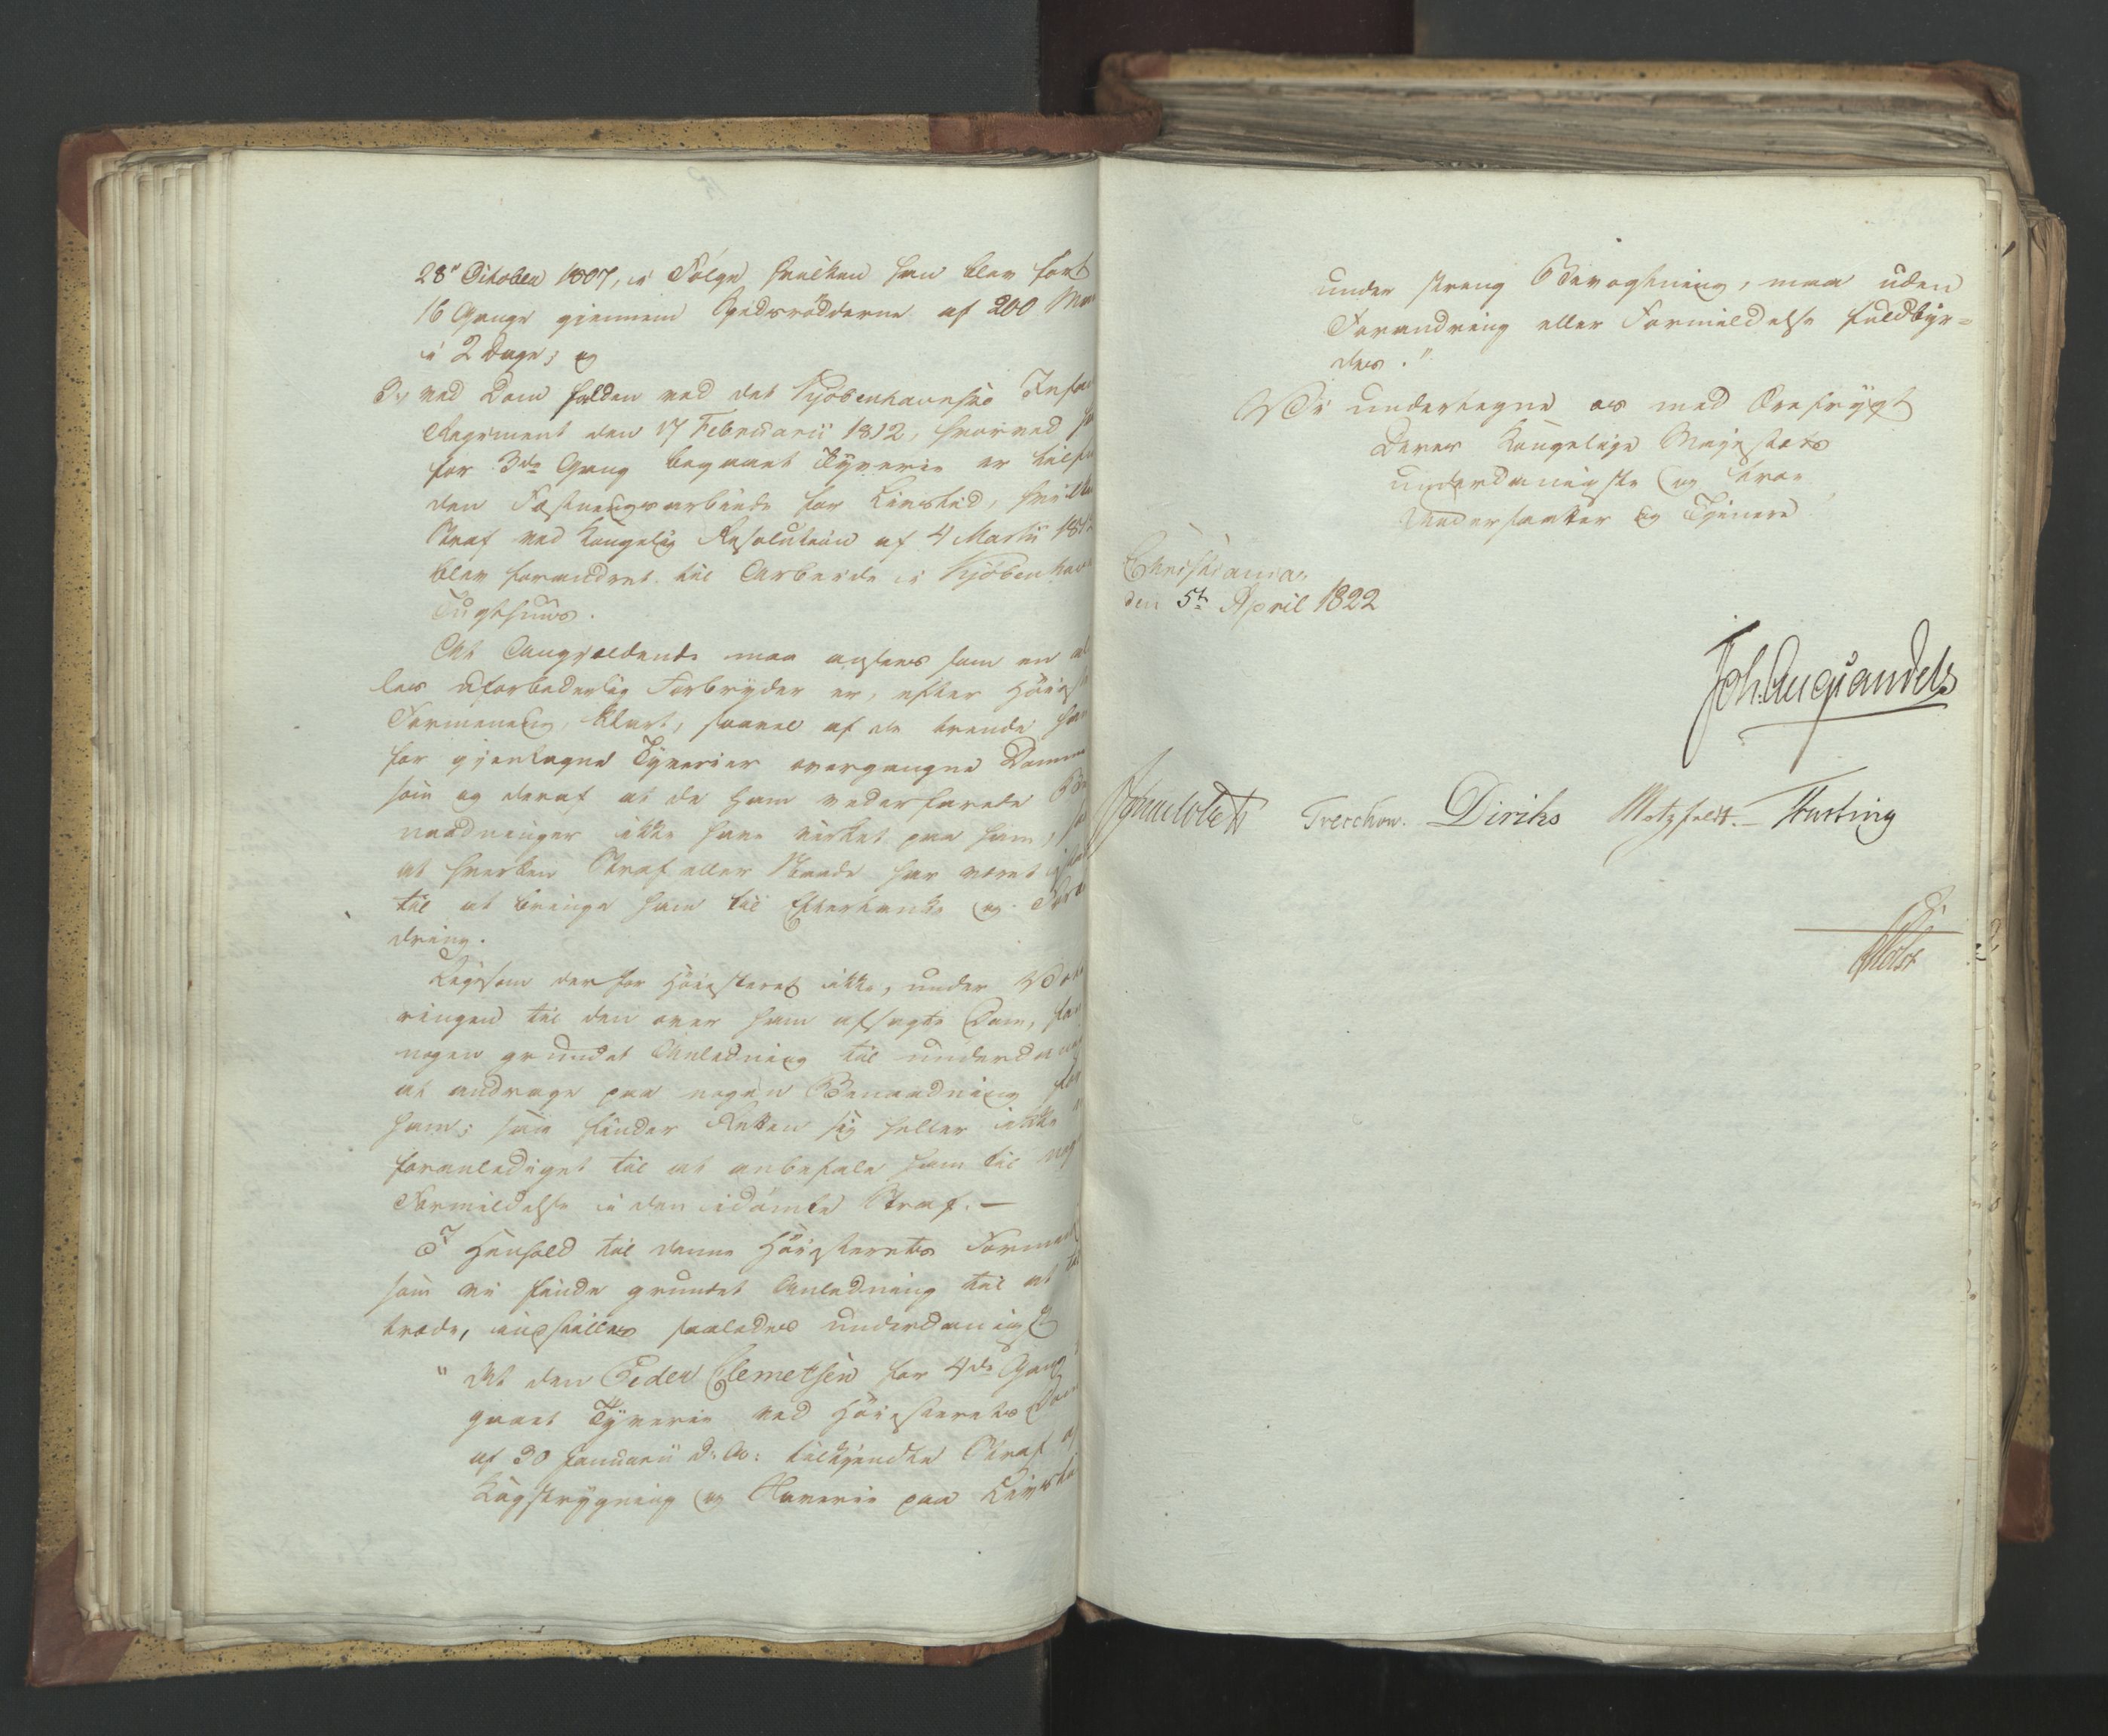 28de October 1807, i Følge hvilken han blev ført
16 Gange giennem Spidsrodderne af 200 Man
i 2 Dage; og
3., ved Dom falden ved det Kjøbenhavnske Infan
Regiment den 17 Februarii 1812, hvorved
for 3de Gang begaaet Tyverie er
den Fæstningsarbeide for Livstid, hvilken
Straf ved Kongelig Resolution af 4 Martii 181
blev forandret til Arbeide i Kjøbenhavns
Tugthuus.
At Angjældende maa ansees som en al
les uforbederlig Forbryder er, efter Høieste
Formening, klart, saavel af de trende ham
for gjentagne Tyverier overgangne Domme
som og deraf at de ham vederfarede Be
naadninger ikke have virket paa ham,
at hverken Straf eller Naade har været
til at bringe ham til Eftertanke og For
dring.
Ligesom derfor Høiesteret ikke, under Vote
ringen til den over ham afsagte Dom, fan
nogen grundet Anledning til underdanig
at andrage paa nogen Benaadning for
ham; saa finder Retten sig heller ikke
foranlediget til at anbefale ham til nog
Formildelse i den idømte Straf. —
I Henhold til denne Høiesterets Formening
som vi finde grundet Anledning til at til
træde, indstilles saaledes underdanigst
"At den Peder Clemetsen for 4de Gang
gaaet Tyverie ved Høiesterets Dom
af 30 Januarii d: A: tilkjendte Straf af
Kagstrygning og Slaverie paa Livstid
under streng Bevogtning, maa uden
Forandring eller Formildelse fuldbyr=
des."
Vi undertegne os med Ærefrygt
Deres Kongelige Majestæts
underdanigste og troe
Undersaatter og Tjenere
Christiania
den 5te April 1822
Joh. Aug. Sandels
Sommerhielm Treschow. Diriks Motzfeldt. Fasting
Holst